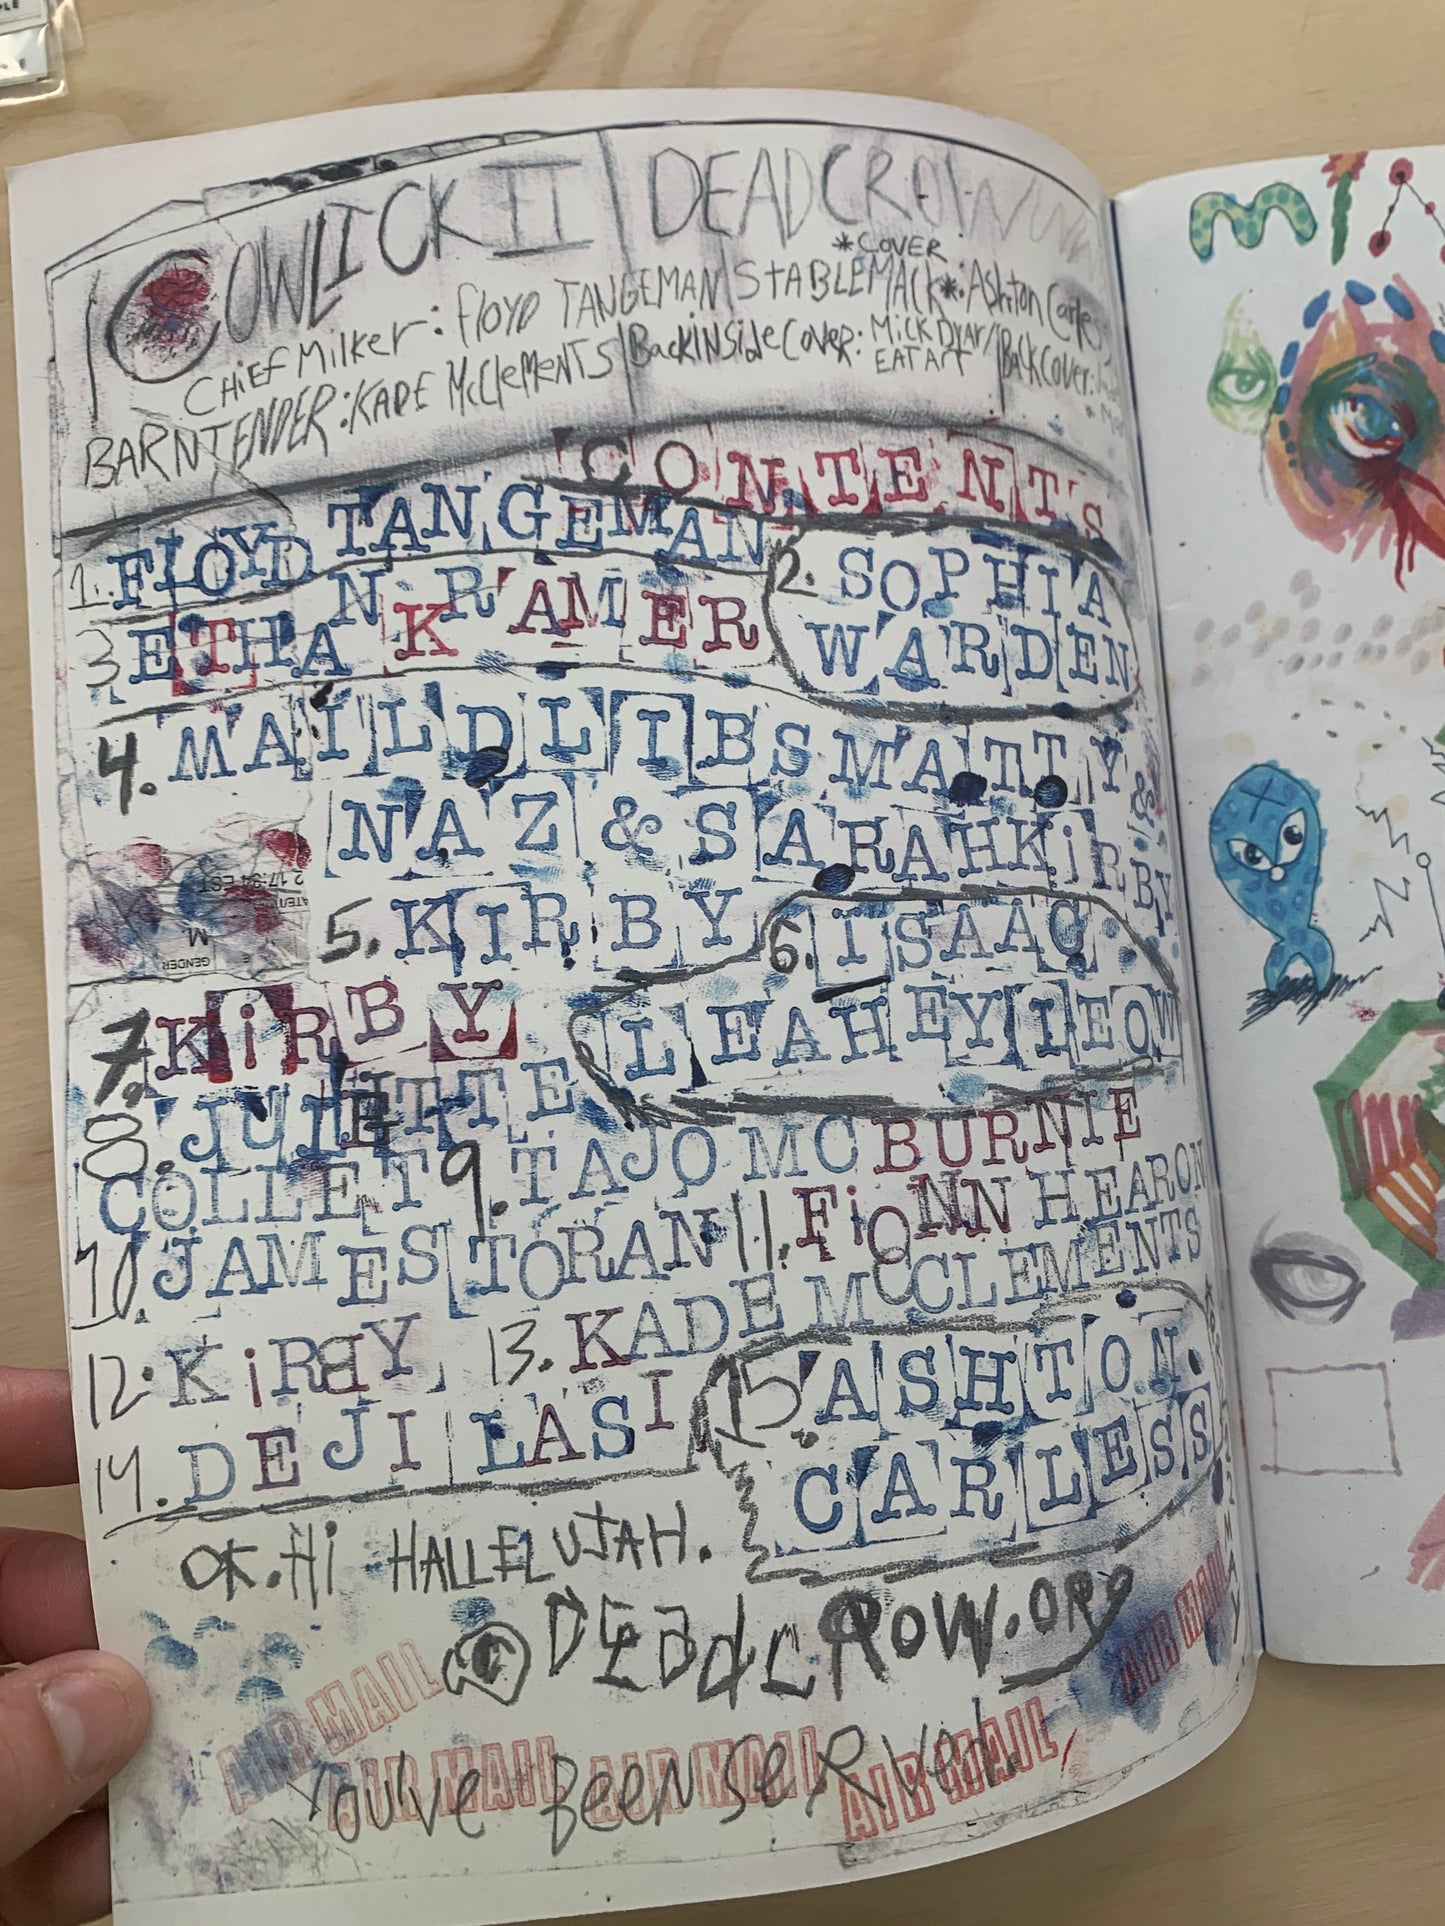 COWLICK II | DEADCROW
CHIEF MILKER: FLOYD TANGEMAN | STABLEMACK*: Ashton Carless
*COVER
BARNTENDER: KADE McClEMENTS | BackINSideCOVER: MICK DYAR/ EAT ART | BACKCOVER:
CONTENTS
1. FLOYD TANGEMAN
2. SOPHIA WARDEN
3 ETHAN KRAMER
4. MAILDLIBS MATTY &
NAZ & SARAH KiRBY
5. KIRBY
6. iSAAC
LEAHEY LEOW
7. KiRBY
8. JULIETTE
COLLET
9. TAJO MCBURNIE
10. JAMES TORAN
11. FiONN HEARON
12. KiRBY
13. KADE MCCLEMENTS
14. DEJI LASI
15. ASHTON
CARLESS
2 17:34 EST
GENDER
M
OK. Hi HALLELUJAH.
@DEADCROW.ORG
AIR MAIL
AIR MAIL
AIR MAIL AIR MAIL AIR MAIL
YOU'VE BEEN SERVED.